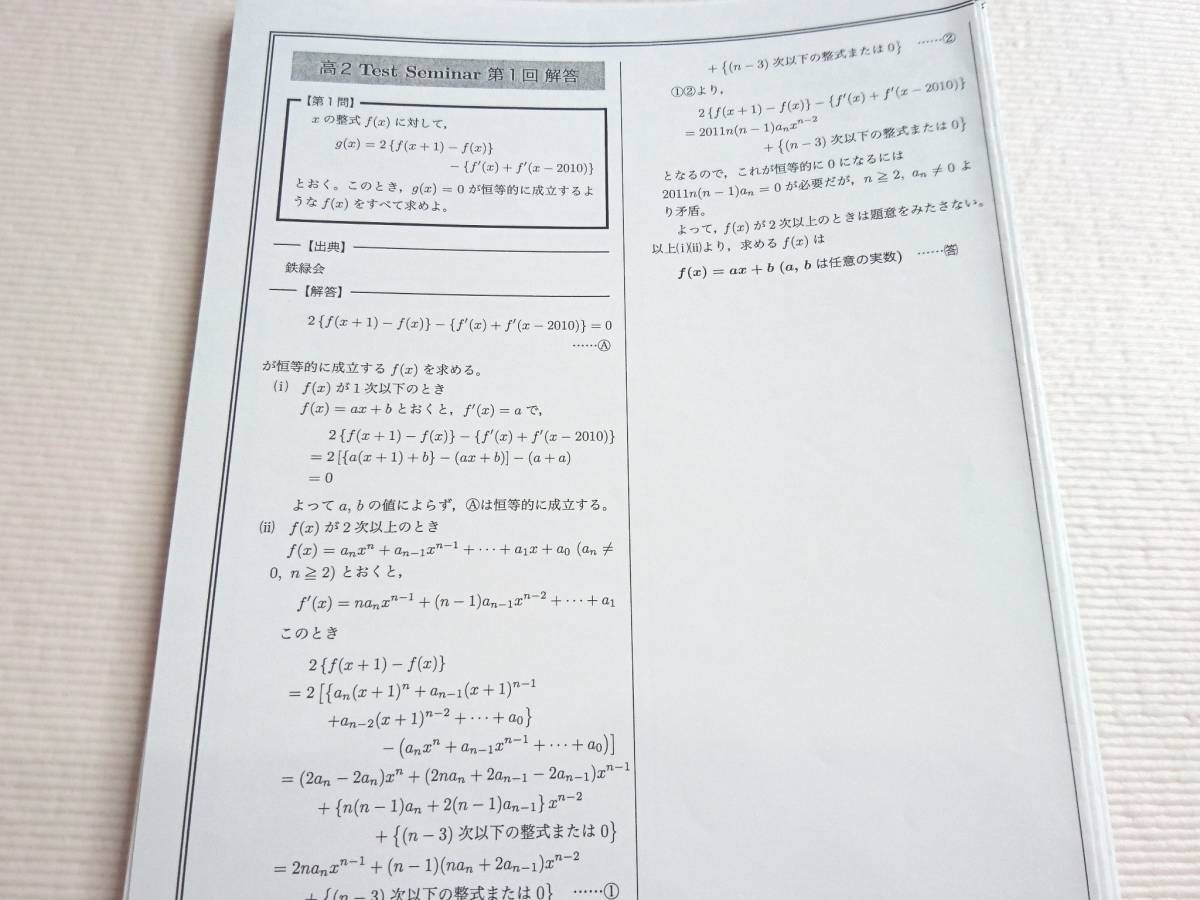 高2 Test Seminar 第1回 解答
【第1問】
xの整式 f(x) に対して,
g(x) = 2 {f(x + 1) − f(x)}
− {f′(x) + f′(x − 2010)}
とおく。このとき, g(x) = 0 が恒等的に成立するよ
うな f(x) をすべて求めよ。
【出典】
鉄緑会
【解答】
2 {f(x + 1) − f(x)} − {f′(x) + f′(x − 2010)} = 0
……Ⓐ
が恒等的に成立する f(x) を求める。
(i) f(x) が1次以下のとき
f(x) = ax + b とおくと, f′(x) = a で,
2 {f(x + 1) − f(x)} − {f′(x) + f′(x − 2010)}
= 2 [{a(x + 1) + b} − (ax + b)] − (a + a)
= 0
よって a, b の値によらず, Ⓐは恒等的に成立する。
(ii) f(x) が2次以上のとき
f(x) = aₙxⁿ + aₙ₋₁xⁿ⁻¹ + ··· + a₁x + a₀ (aₙ ≠
0, n ≧ 2) とおくと,
f′(x) = naₙxⁿ⁻¹ + (n − 1)aₙ₋₁xⁿ⁻² + ··· + a₁
このとき
2 {f(x + 1) − f(x)}
= 2 [{aₙ(x + 1)ⁿ + aₙ₋₁(x + 1)ⁿ⁻¹
+aₙ₋₂(x + 1)ⁿ⁻² + ··· + a₀}
− (aₙxⁿ + aₙ₋₁xⁿ⁻¹ + ··· + a₀)]
= (2aₙ − 2aₙ)xⁿ + (2naₙ + 2aₙ₋₁ − 2aₙ₋₁)xⁿ⁻¹
+ {n(n − 1)aₙ + 2(n − 1)aₙ₋₁} xⁿ⁻²
+ {(n − 3) 次以下の整式または 0}
= 2naₙxⁿ⁻¹ + (n − 1)(naₙ + 2aₙ₋₁)xⁿ⁻²
+ {(n − 3) 次以下の整式または 0} ……①
+ {(n − 3) 次以下の整式または 0} ……②
①②より,
2 {f(x + 1) − f(x)} − {f′(x) + f′(x − 2010)}
= 2011n(n − 1)aₙxⁿ⁻²
+ {(n − 3) 次以下の整式または 0}
となるので, これが恒等的に 0 になるには
2011n(n − 1)aₙ = 0 が必要だが, n ≧ 2, aₙ ≠ 0 よ
り矛盾。
よって, f(x) が2次以上のときは題意をみたさない。
以上(i)(ii)より, 求める f(x) は
f(x) = ax + b (a, b は任意の実数) ……㊎答